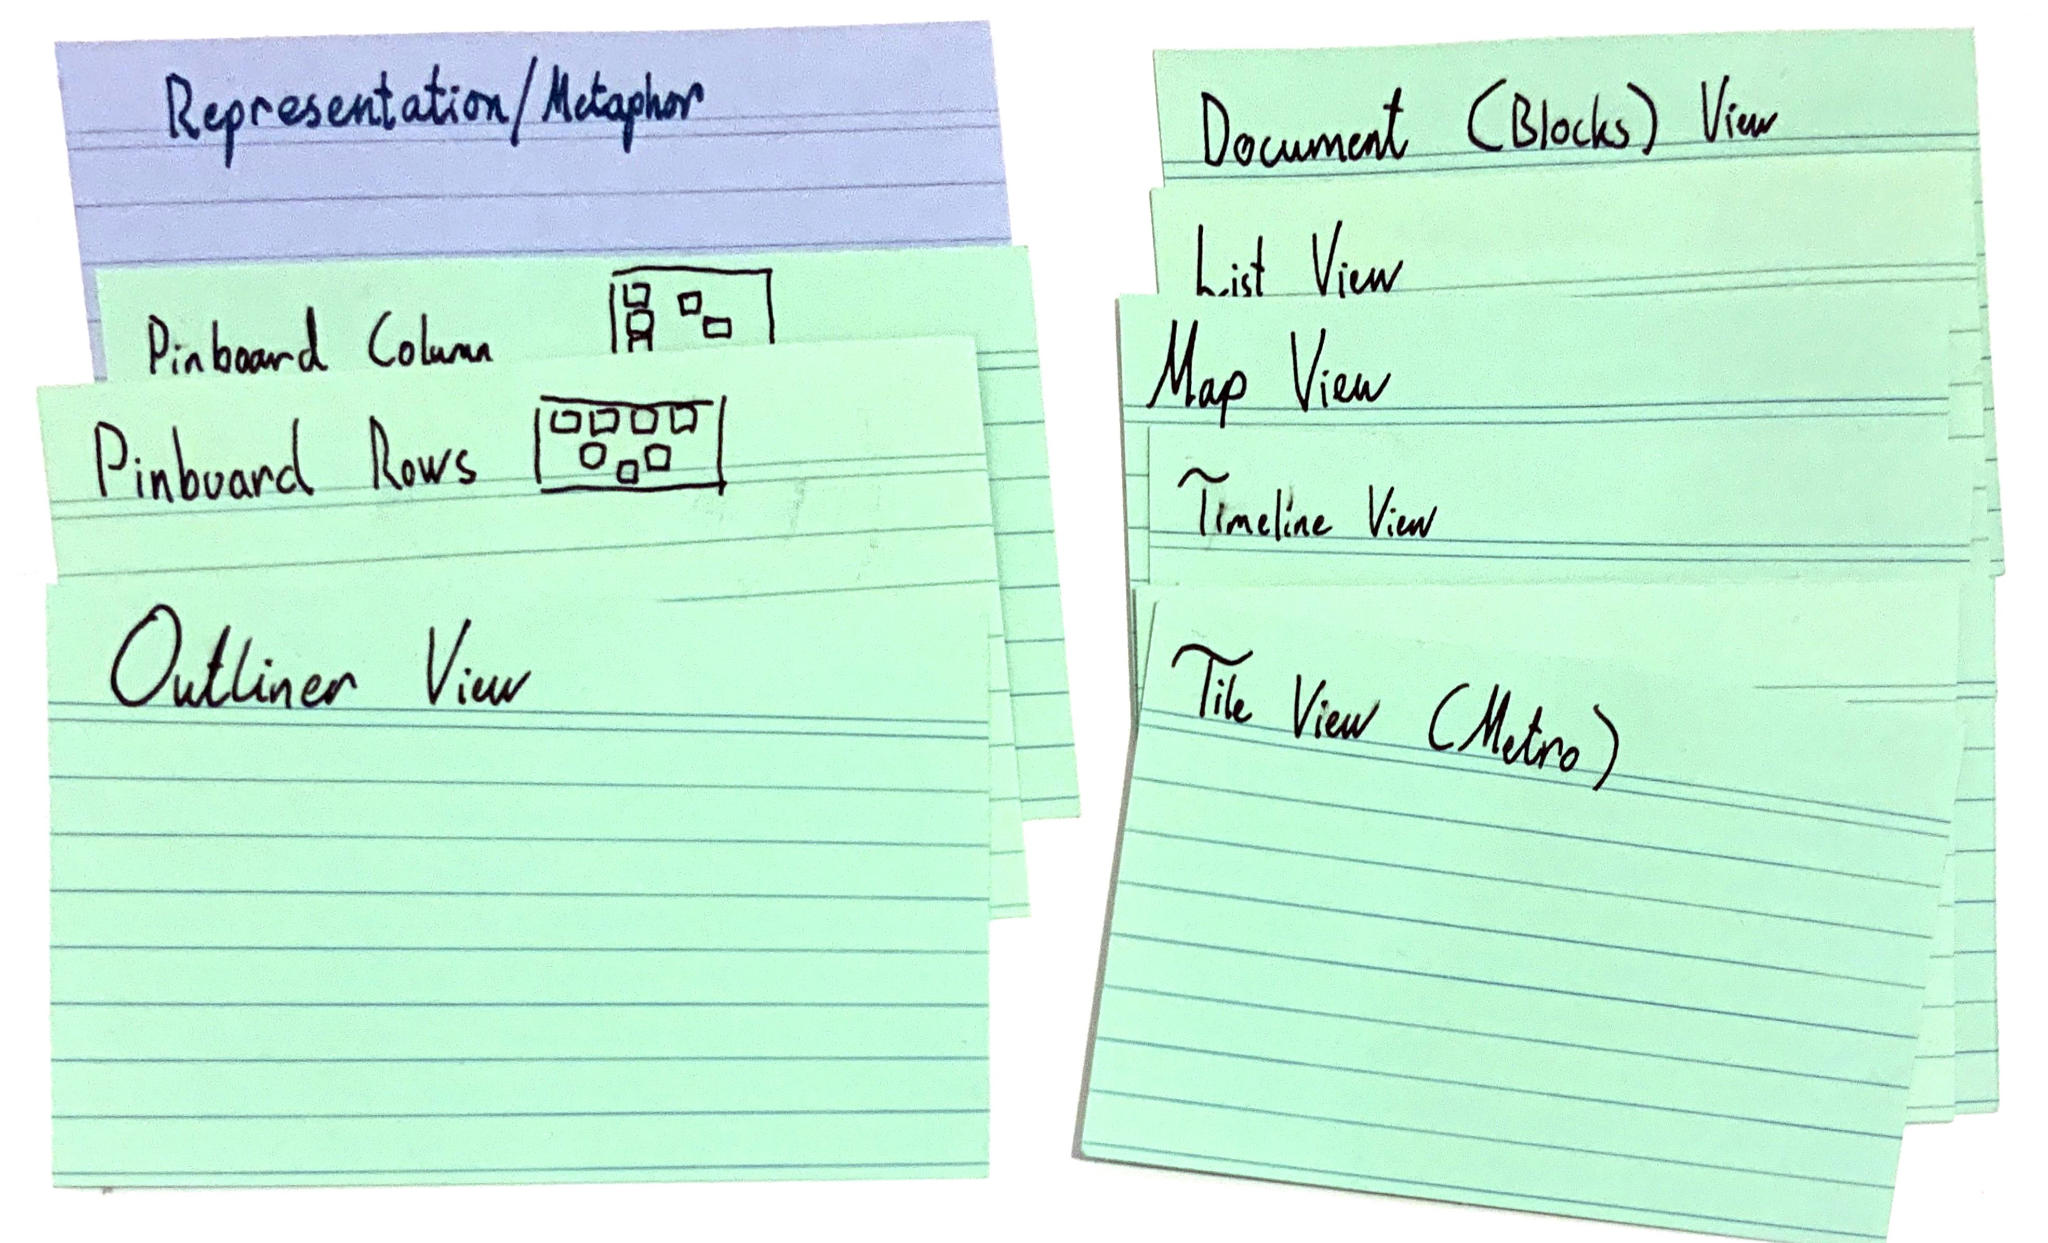 Representation/Metaphor
Pinboard Column
Pinboard Rows
Outliner View
Document (Blocks) View
List View
Map View
Timeline View
Tile View (Metro)